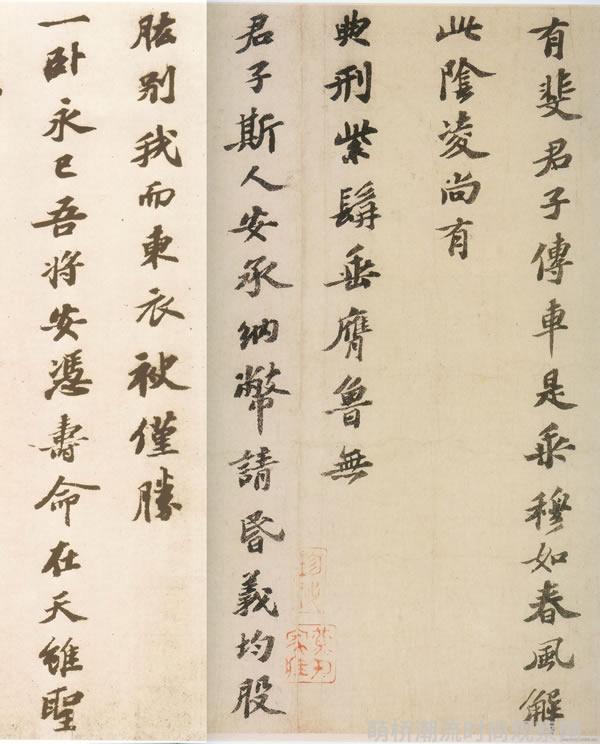 有斐君子傳車是乘穆如春風解
此陰凌尚有
典刑紫髯垂膺魯無
君子斯人安承納幣請昏義均股
肱别我而東衣袂僅勝
一卧永已吾將安憑壽命在天雖聖